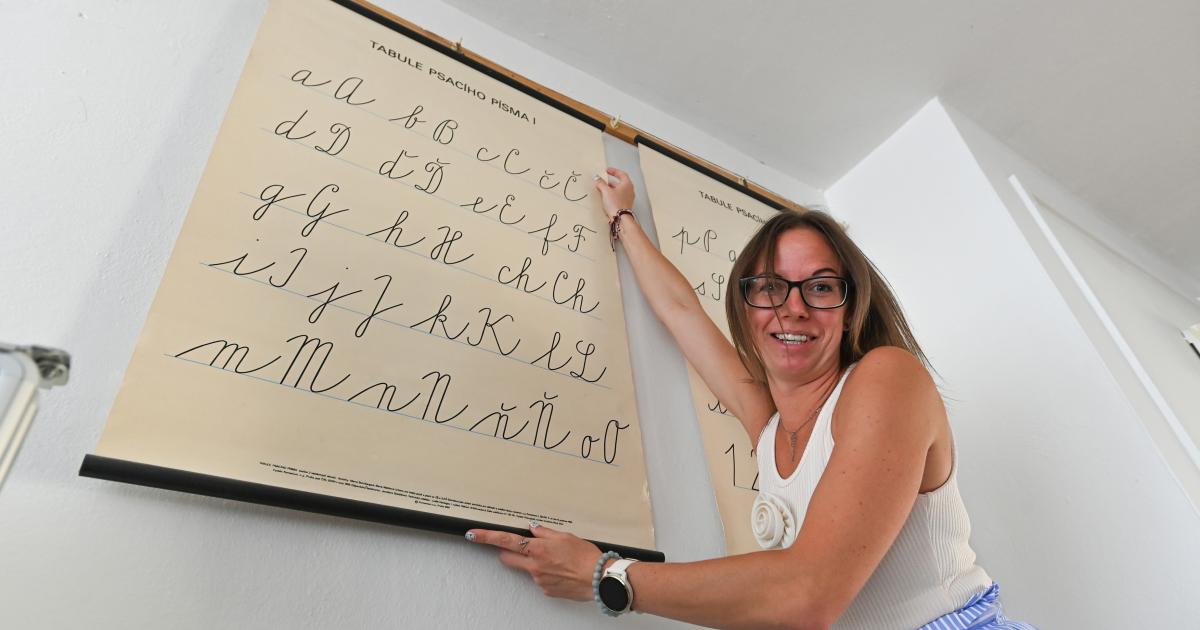 TABULE PSACÍHO PÍSMA I
a A b B c C č Č
d D ď Ď e E f F
g G h H ch Ch
i I j J k K l L
m M n N ň Ň o O
TABULE
p P
s S